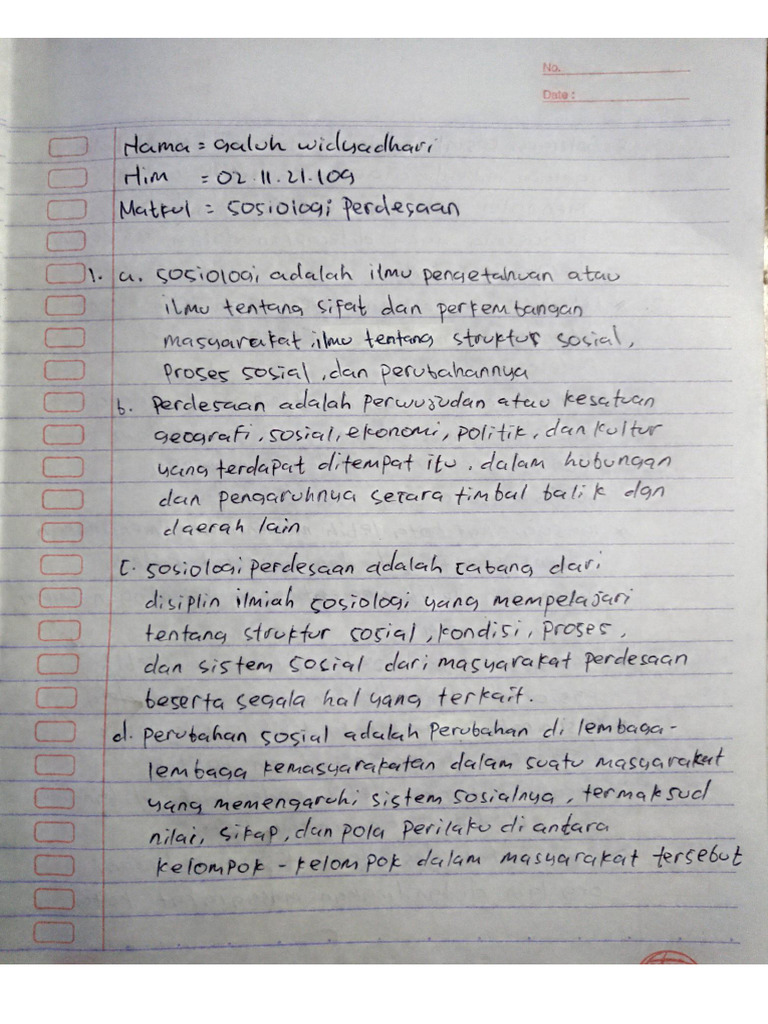 No.
Date :
Nama = Galuh widyadhari
Nim = 02.11.21.109
Matkul = Sosiologi Perdesaan
1. a. Sosiologi adalah ilmu pengetahuan atau
ilmu tentang sifat dan perkembangan
masyarakat, ilmu tentang struktur sosial,
proses sosial, dan perubahannya
b. Perdesaan adalah perwujudan atau kesatuan
geografi, sosial, ekonomi, politik, dan kultur
yang terdapat ditempat itu, dalam hubungan
dan pengaruhnya secara timbal balik dgn
daerah lain
c. Sosiologi perdesaan adalah cabang dari
disiplin ilmiah sosiologi yang mempelajari
tentang struktur sosial, kondisi, proses,
dan sistem sosial dari masyarakat perdesaan
beserta segala hal yang terkait.
d. Perubahan sosial adalah Perubahan di lembaga-
lembaga kemasyarakatan dalam suatu masyarakat
yang memengaruhi sistem sosialnya, termaksud
nilai, sikap, dan pola perilaku di antara
kelompok - kelompok dalam masyarakat tersebut